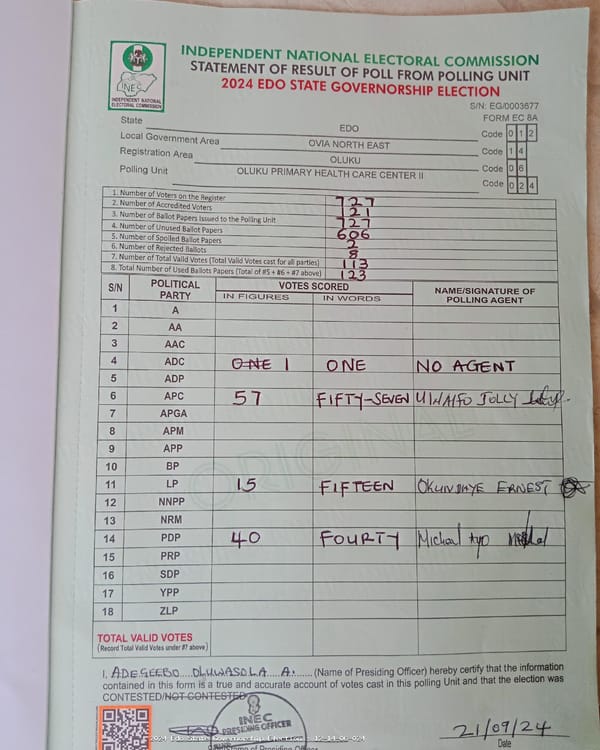 INDEPENDENT NATIONAL ELECTORAL COMMISSION
STATEMENT OF RESULT OF POLL FROM POLLING UNIT
2024 EDO STATE GOVERNORSHIP ELECTION
INEC
INDEPENDENT NATIONAL ELECTORAL COMMISSION
S/N: EG/0003677
FORM EC 8A
State EDO Code 0 1 2
Local Government Area OVIA NORTH EAST Code 1 4
Registration Area OLUKU Code 0 6
Polling Unit OLUKU PRIMARY HEALTH CARE CENTER II Code 0 2 4
1. Number of Voters on the Register 727
2. Number of Accredited Voters 121
3. Number of Ballot Papers Issued to the Polling Unit 727
4. Number of Unused Ballot Papers 606
5. Number of Spoiled Ballot Papers 2
6. Number of Rejected Ballots 8
7. Number of Total Valid Votes (Total Valid Votes cast for all parties) 113
8. Total Number of Used Ballots Papers (Total of #5 + #6 + #7 above) 123
S/N POLITICAL PARTY VOTES SCORED NAME/SIGNATURE OF POLLING AGENT
IN FIGURES IN WORDS
1 A
2 AA
3 AAC
4 ADC ONE 1 ONE NO AGENT
5 ADP
6 APC 57 FIFTY-SEVEN UWAIFO JOLLY
7 APGA
8 APM
9 APP
10 BP
11 LP 15 FIFTEEN OKUNDAYE ERNEST
12 NNPP
13 NRM
14 PDP 40 FOURTY Michael Ayo
15 PRP
16 SDP
17 YPP
18 ZLP
ORIGINAL
TOTAL VALID VOTES
(Record Total Valid Votes under #7 above)
I, ADEGEEBO OLUWASOLA A. (Name of Presiding Officer) hereby certify that the information
contained in this form is a true and accurate account of votes cast in this polling Unit and that the election was
CONTESTED/NOT CONTESTED
INEC
PRESIDING OFFICER
21/09/24
Date